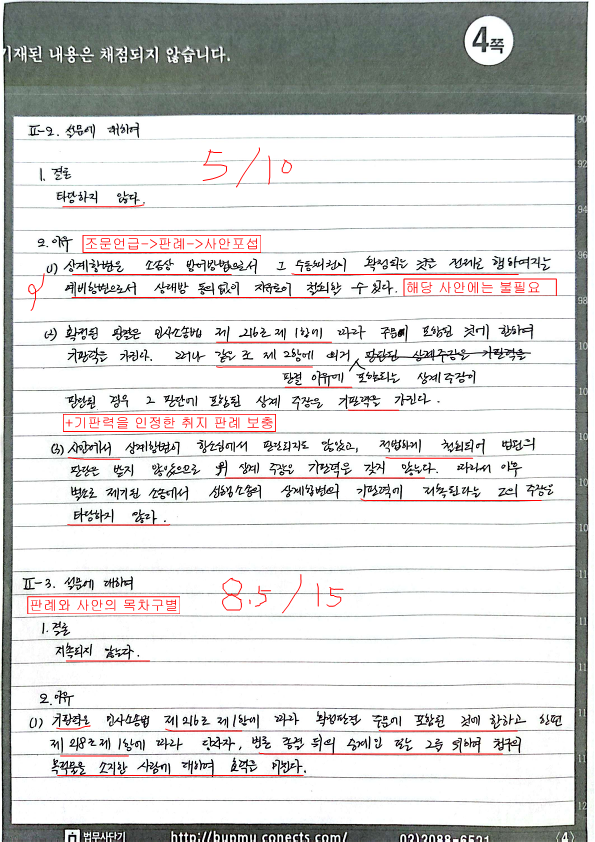 기재된 내용은 채점되지 않습니다.
4쪽
Ⅱ-2. 설문에 대하여
5/10
1. 결론
타당하지 않다.
2. 이유 조문언급->판례->사안포섭
(1) 상계항변은 소송상 방어방법으로서 그 수동채권이 확정되는 것을 전제로 행하여지는
예비항변으로서 상대방 동의없이 자유로이 철회할 수 있다. 해당 사안에는 불필요
(2) 확정된 판결은 민사소송법 제 216조 제1항에 따라 주문에 포함된 것에 한하여
기판력을 가진다. 그러나 같은 조 제2항에 의거 판단된 상계주장은 기판력을
판결 이유에 포함되는 상계주장이
판단된 경우 그 판단에 포함된 상계 주장은 기판력을 가진다.
+기판력을 인정한 취지 판례 보충
(3) 사안에서 상계항변이 항소심에서 판단되지도 않았고, 적법하게 철회되어 법원의
판단을 받지 않았으므로 위 상계 주장은 기판력을 갖지 않는다. 따라서 이후
별소로 제기된 소송에서 선행소송의 상계항변의 기판력에 저촉된다는 乙의 주장은
타당하지 않다.
Ⅱ-3. 설문에 대하여
8.5/15
판례와 사안의 목차구별
1. 결론
저촉되지 않는다.
2. 이유
(1) 기판력은 민사소송법 제216조 제1항에 따라 확정판결 주문에 포함된 것에 한하고 한편
제 218조 제1항에 따라 당사자, 변론 종결 뒤의 승계인 또는 그를 위하여 청구의
목적물을 소지한 사람에 대하여 효력이 미친다.
법무사단기 http://bupmu.conects.com/ 02)2088-6521 〈4〉